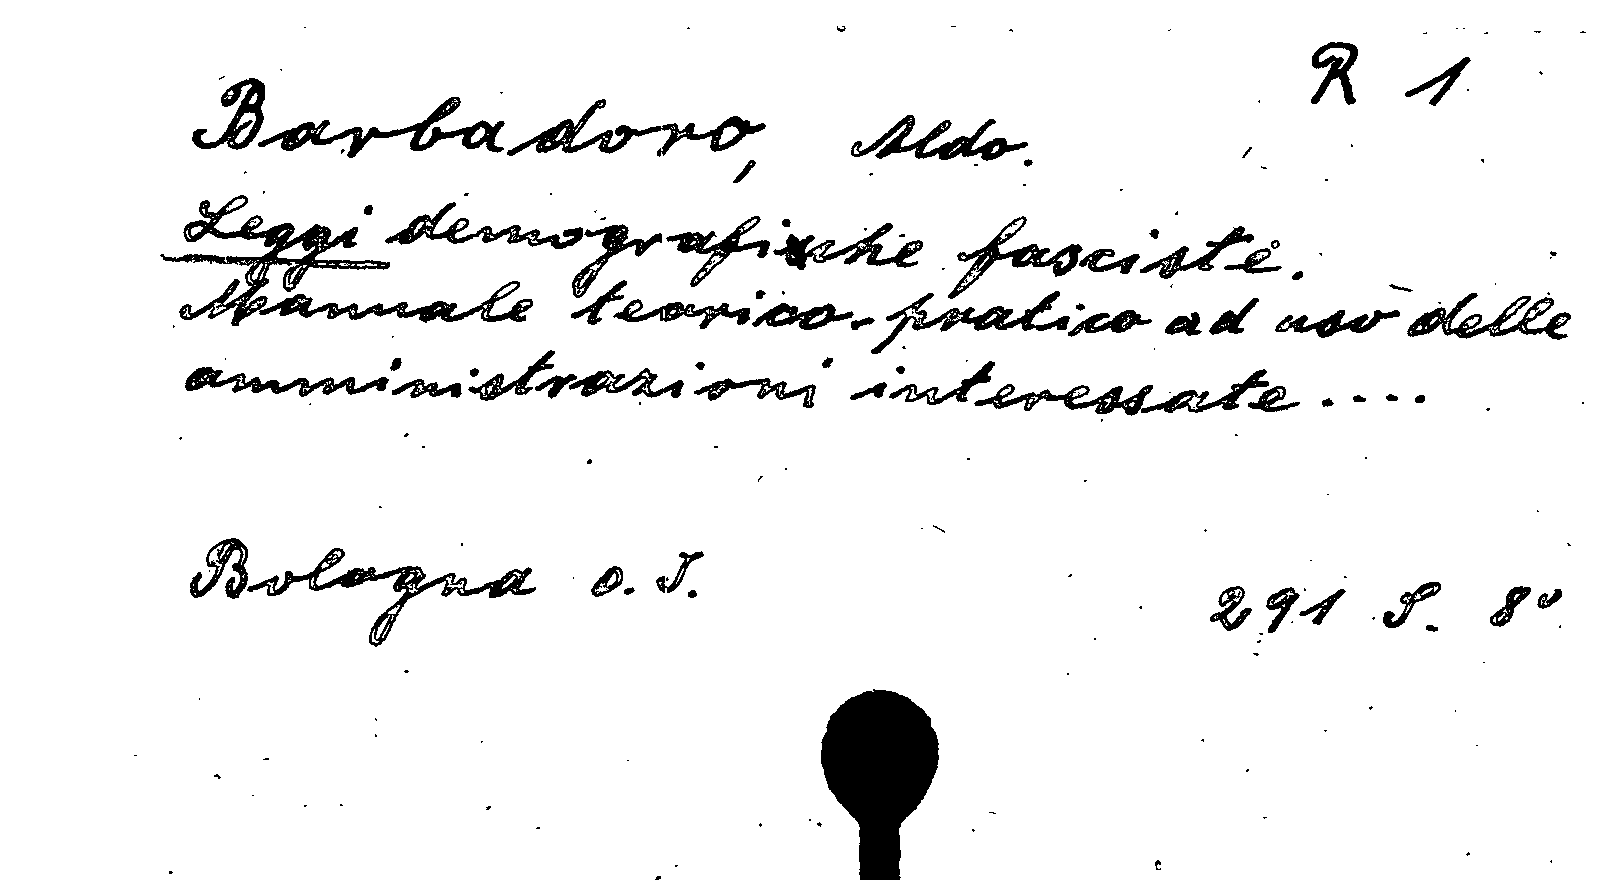 R 1
Barbadoro, Aldo.
Leggi demografiche fasciste.
Manuale teorico-pratico ad uso delle
amministrazioni interessate....
Bologna o. J.
291 S. 8°